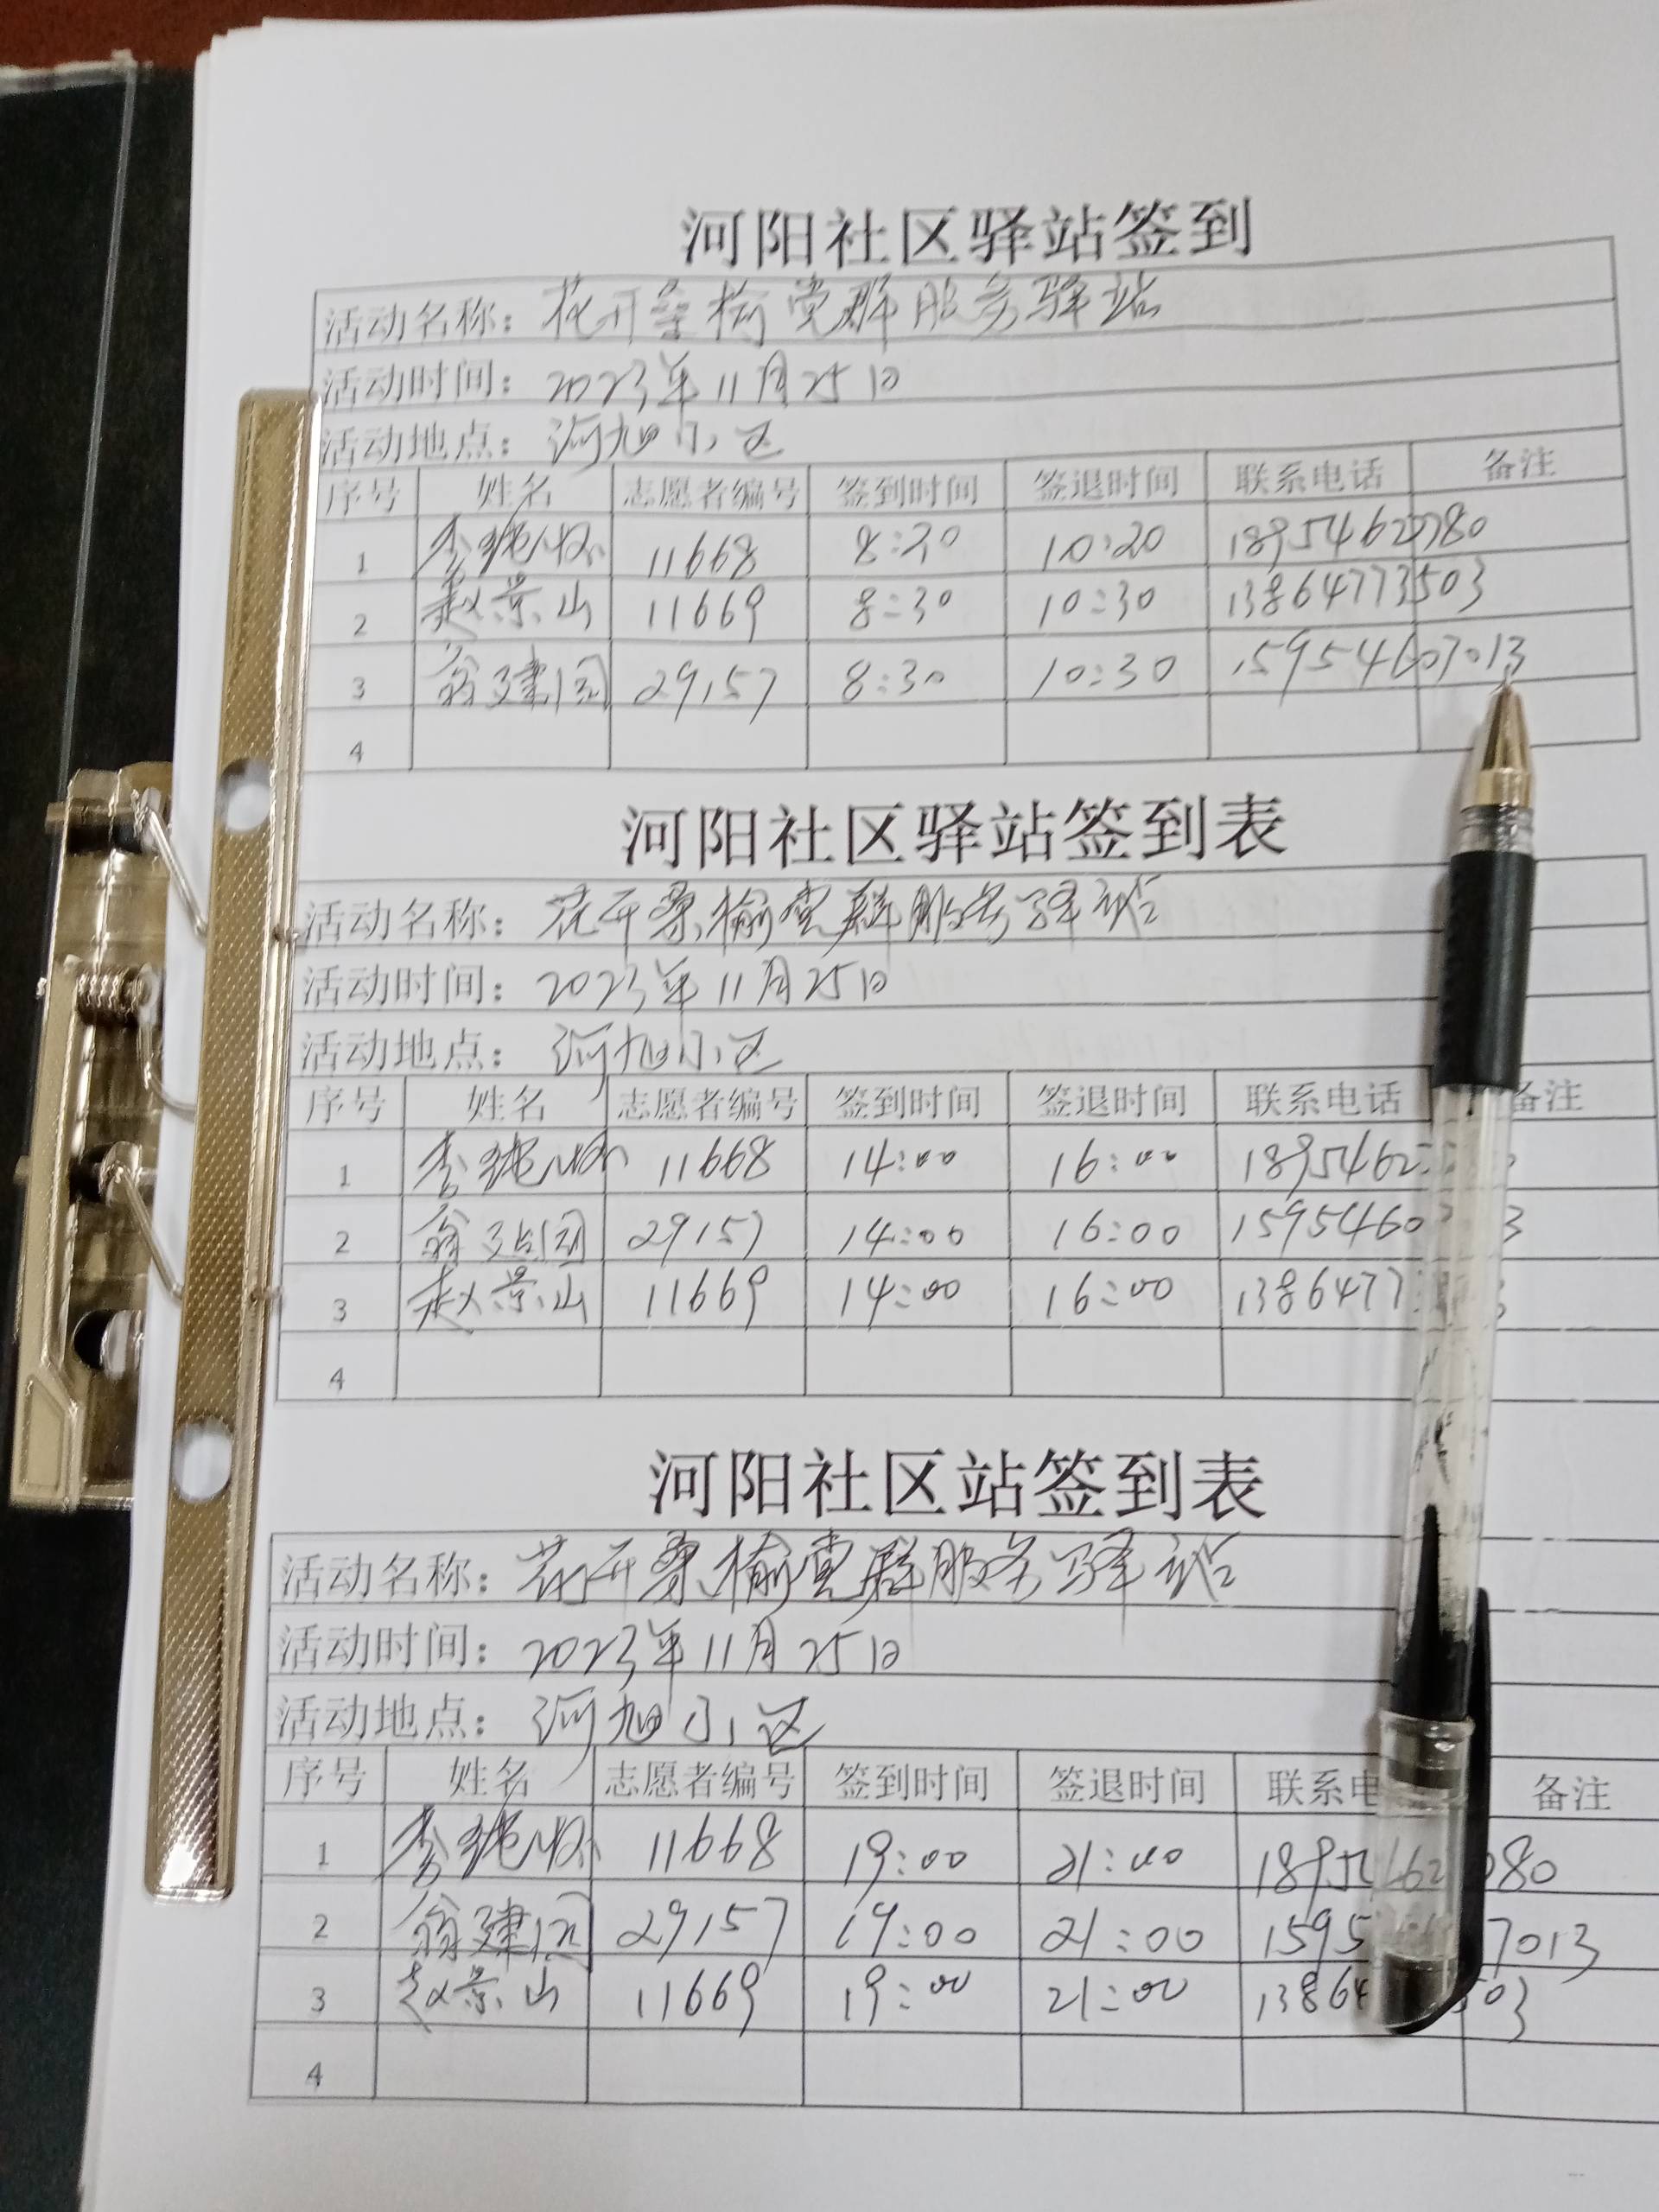 河阳社区驿站签到
活动名称：花开桑榆党群服务驿站
活动时间：2023年11月25日
活动地点：河旭小区
序号 姓名 志愿者编号 签到时间 签退时间 联系电话 备注
1 李 11668 8:30 10:20
2 赵景山 11669 8:30 10:30 13864773503
3 翁建国 29157 8:30 10:30 15954607013
4
河阳社区驿站签到表
活动名称：花开桑榆党群服务驿站
活动时间：2023年11月25日
活动地点：河旭小区
序号 姓名 志愿者编号 签到时间 签退时间 联系电话 备注
1 李 11668 14:00 16:00 1895462
2 翁建国 29157 14:00 16:00 15954607 3
3 赵景山 11669 14:00 16:00 1386477 3
4
河阳社区站签到表
活动名称：花开桑榆党群服务驿站
活动时间：2023年11月25日
活动地点：河旭小区
序号 姓名 志愿者编号 签到时间 签退时间 联系电 备注
1 李 11668 19:00 21:00 1895 62 080
2 翁建国 29157 19:00 21:00 1595 7013
3 赵景山 11669 19:00 21:00 13864 503
4